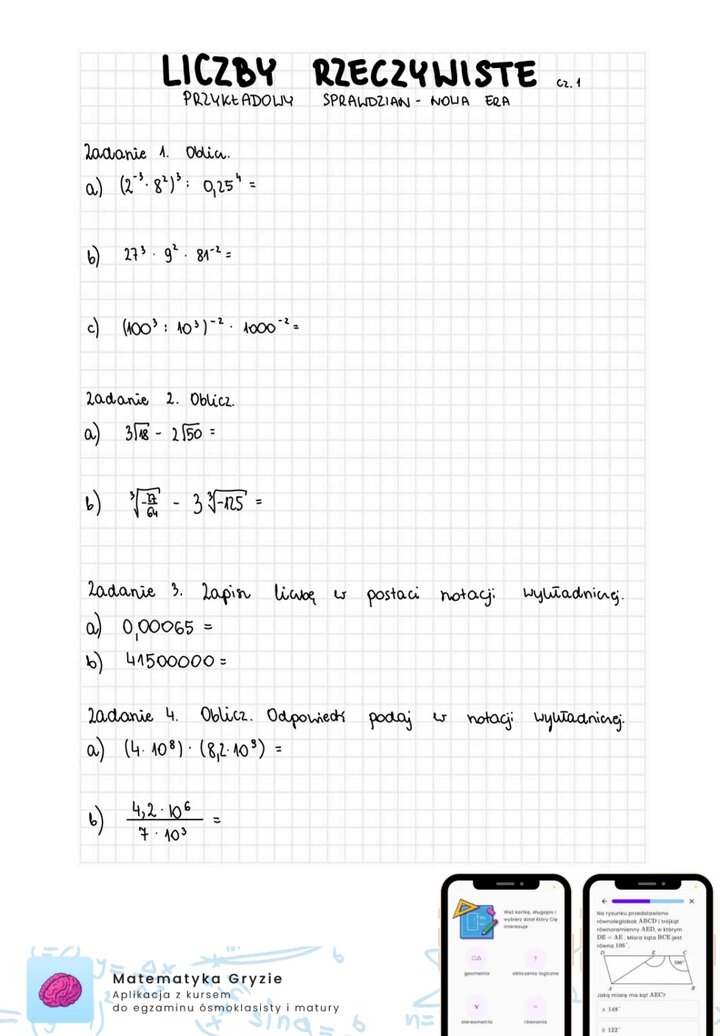 LICZBY RZECZYWISTE cz. 1
PRZYKŁADOWY SPRAWDZIAN - NOWA ERA
Zadanie 1. Oblicz.
a) (2⁻³ · 8²)³ : 0,25⁴ =
b) 27³ · 9² · 81⁻² =
c) (100³ : 10³)⁻² · 1000⁻² =
Zadanie 2. Oblicz.
a) 3√18 - 2√50 =
b) ³√(-27/64) - 3 ³√-125 =
Zadanie 3. Zapisz liczbę w postaci notacji wykładniczej.
a) 0,00065 =
b) 41500000 =
Zadanie 4. Oblicz. Odpowiedź podaj w notacji wykładniczej.
a) (4 · 10⁸) · (8,2 · 10⁹) =
b) 4,2 · 10⁶ / 7 · 10³ =
Matematyka Gryzie
Aplikacja z kursem
do egzaminu ósmoklasisty i matury
Weź kartkę, długopis i
wybierz dział który Cię
interesuje
geometria
obliczenia logiczne
stereometria
równania
Na rysunku przedstawiono
równoległobok ABCD i trójkąt
równoramienny AED, w którym
DE = AE. Miara kąta BCE jest
równa 106°.
D E C
106°
A B
Jaką miarę ma kąt AEC?
A. 148°
B. 122°